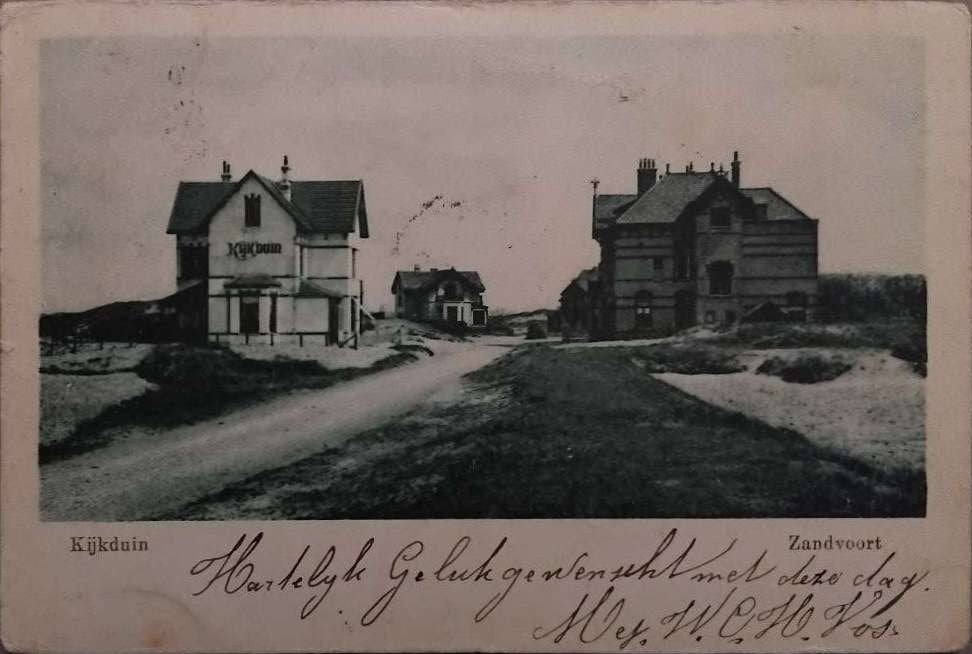 Kijkduin
Kijkduin
Zandvoort
Hartelyk Gelukgewenscht met deze dag.
Mej. W. C. H. Vos.